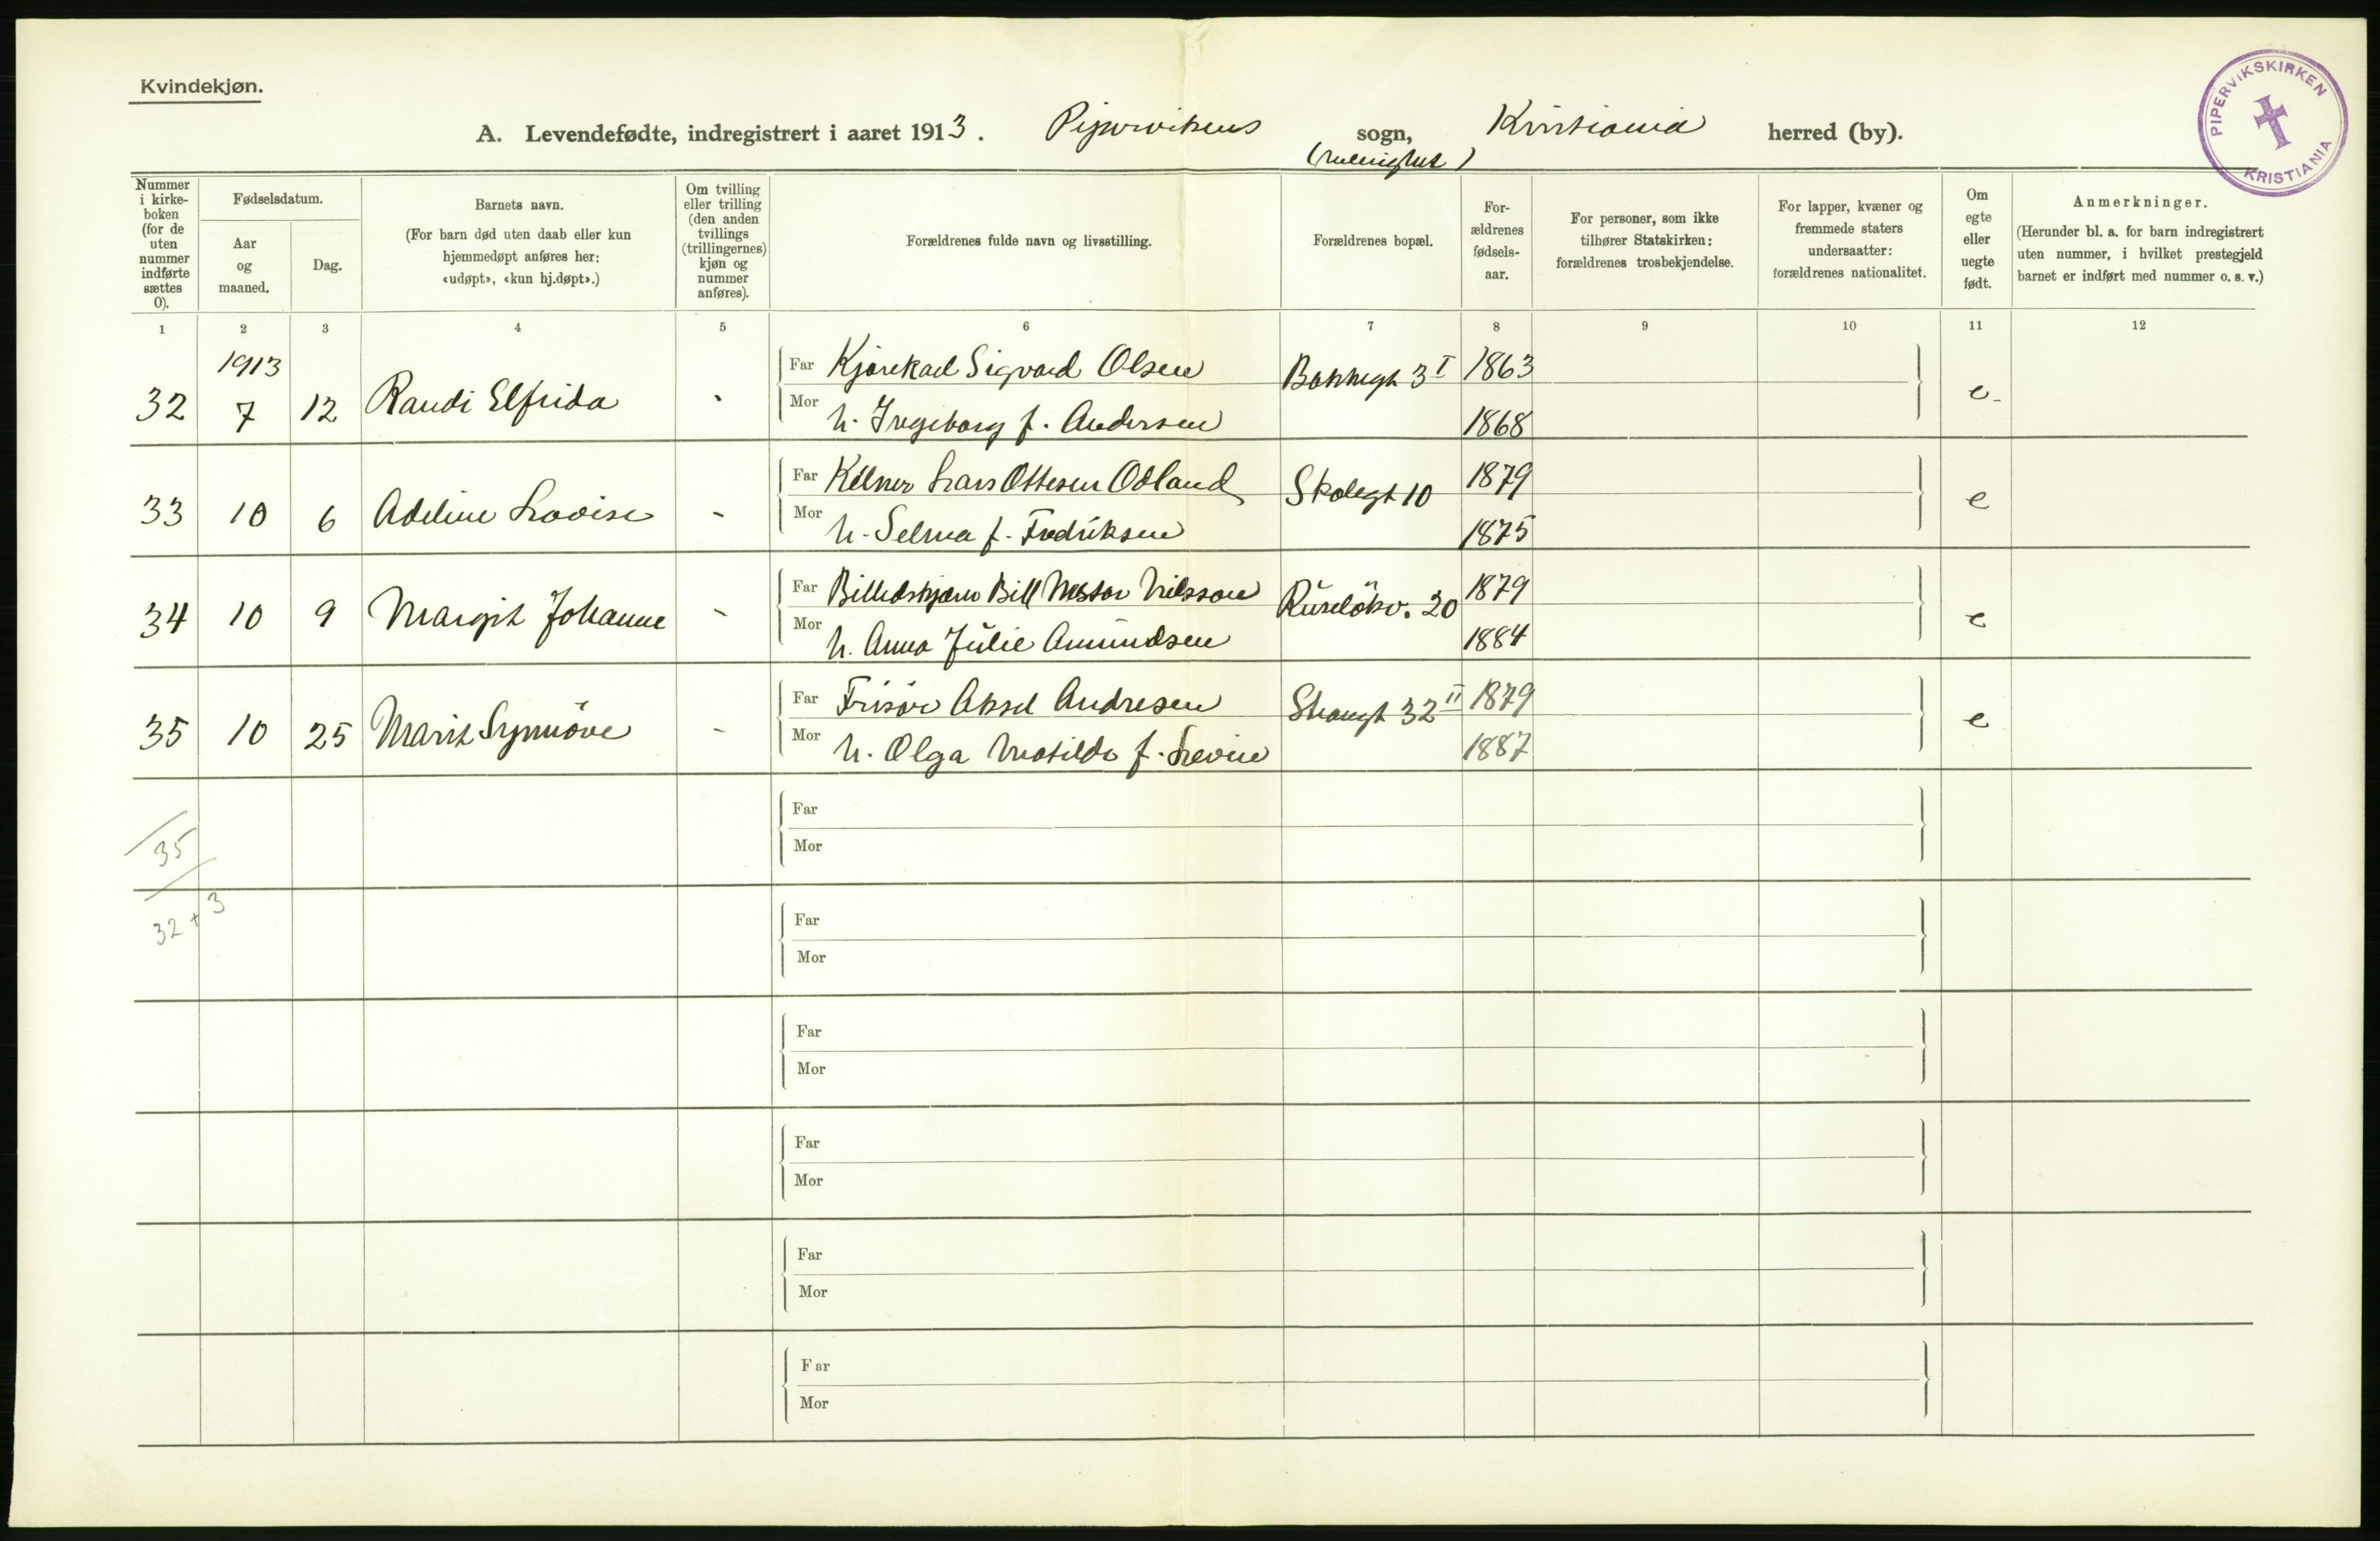 Kvindekjøn.
A. Levendefødte, indregistrert i aaret 1913. Pipervikens sogn, Kristiania herred (by).
(menighet)
PIPERVIKSKIRKEN
KRISTIANIA
Nummer i kirke-boken (for de uten nummer indførte sættes 0).
Fødselsdatum.
Aar og maaned.
Dag.
Barnets navn.
(For barn død uten daab eller kun hjemmedøpt anføres her: «udøpt», «kun hj.døpt».)
Om tvilling eller trilling (den anden tvillings (trillingernes) kjøn og nummer anføres).
Forældrenes fulde navn og livsstilling.
Forældrenes bopæl.
For-ældrenes fødsels-aar.
For personer, som ikke tilhører Statskirken: forældrenes trosbekjendelse.
For lapper, kvæner og fremmede staters undersaatter: forældrenes nationalitet.
Om egte eller uegte født.
Anmerkninger.
(Herunder bl. a. for barn indregistrert uten nummer, i hvilket prestegjeld barnet er indført med nummer o. s. v.)
1 2 3 4 5 6 7 8 9 10 11 12
1913
32 7 12 Randi Elfrida - Far Kjørekarl Sigvard Olsen Bakkegt 3 I 1863 e-
Mor h. Ingeborg f. Andersen 1868
33 10 6 Adeline Lovise - Far Kelner Lars Ottesen Odland Skolegt 10 1879 e
Mor h. Selma f. Fredriksen 1875
34 10 9 Margit Johanne - Far Billedskjærer Bill Nestor Nilsson Ruseløkv. 20 1879 e
Mor h. Anna Julie Amundsen 1884
35 10 25 Marit Synnöve - Far Frisör Aksel Andresen Strangt 32 II 1879 e
Mor h. Olga Matilde f. Levin 1887
Far
Mor
35
Far
Mor
32 + 3
Far
Mor
Far
Mor
Far
Mor
Far
Mor